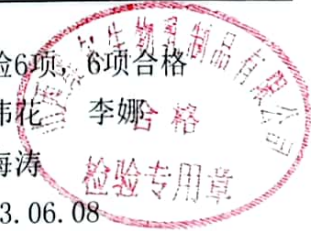 检6项，6项合格
伟花 李娜
海涛
3.06.08
生物乳制品有限公司
合格
检验专用章